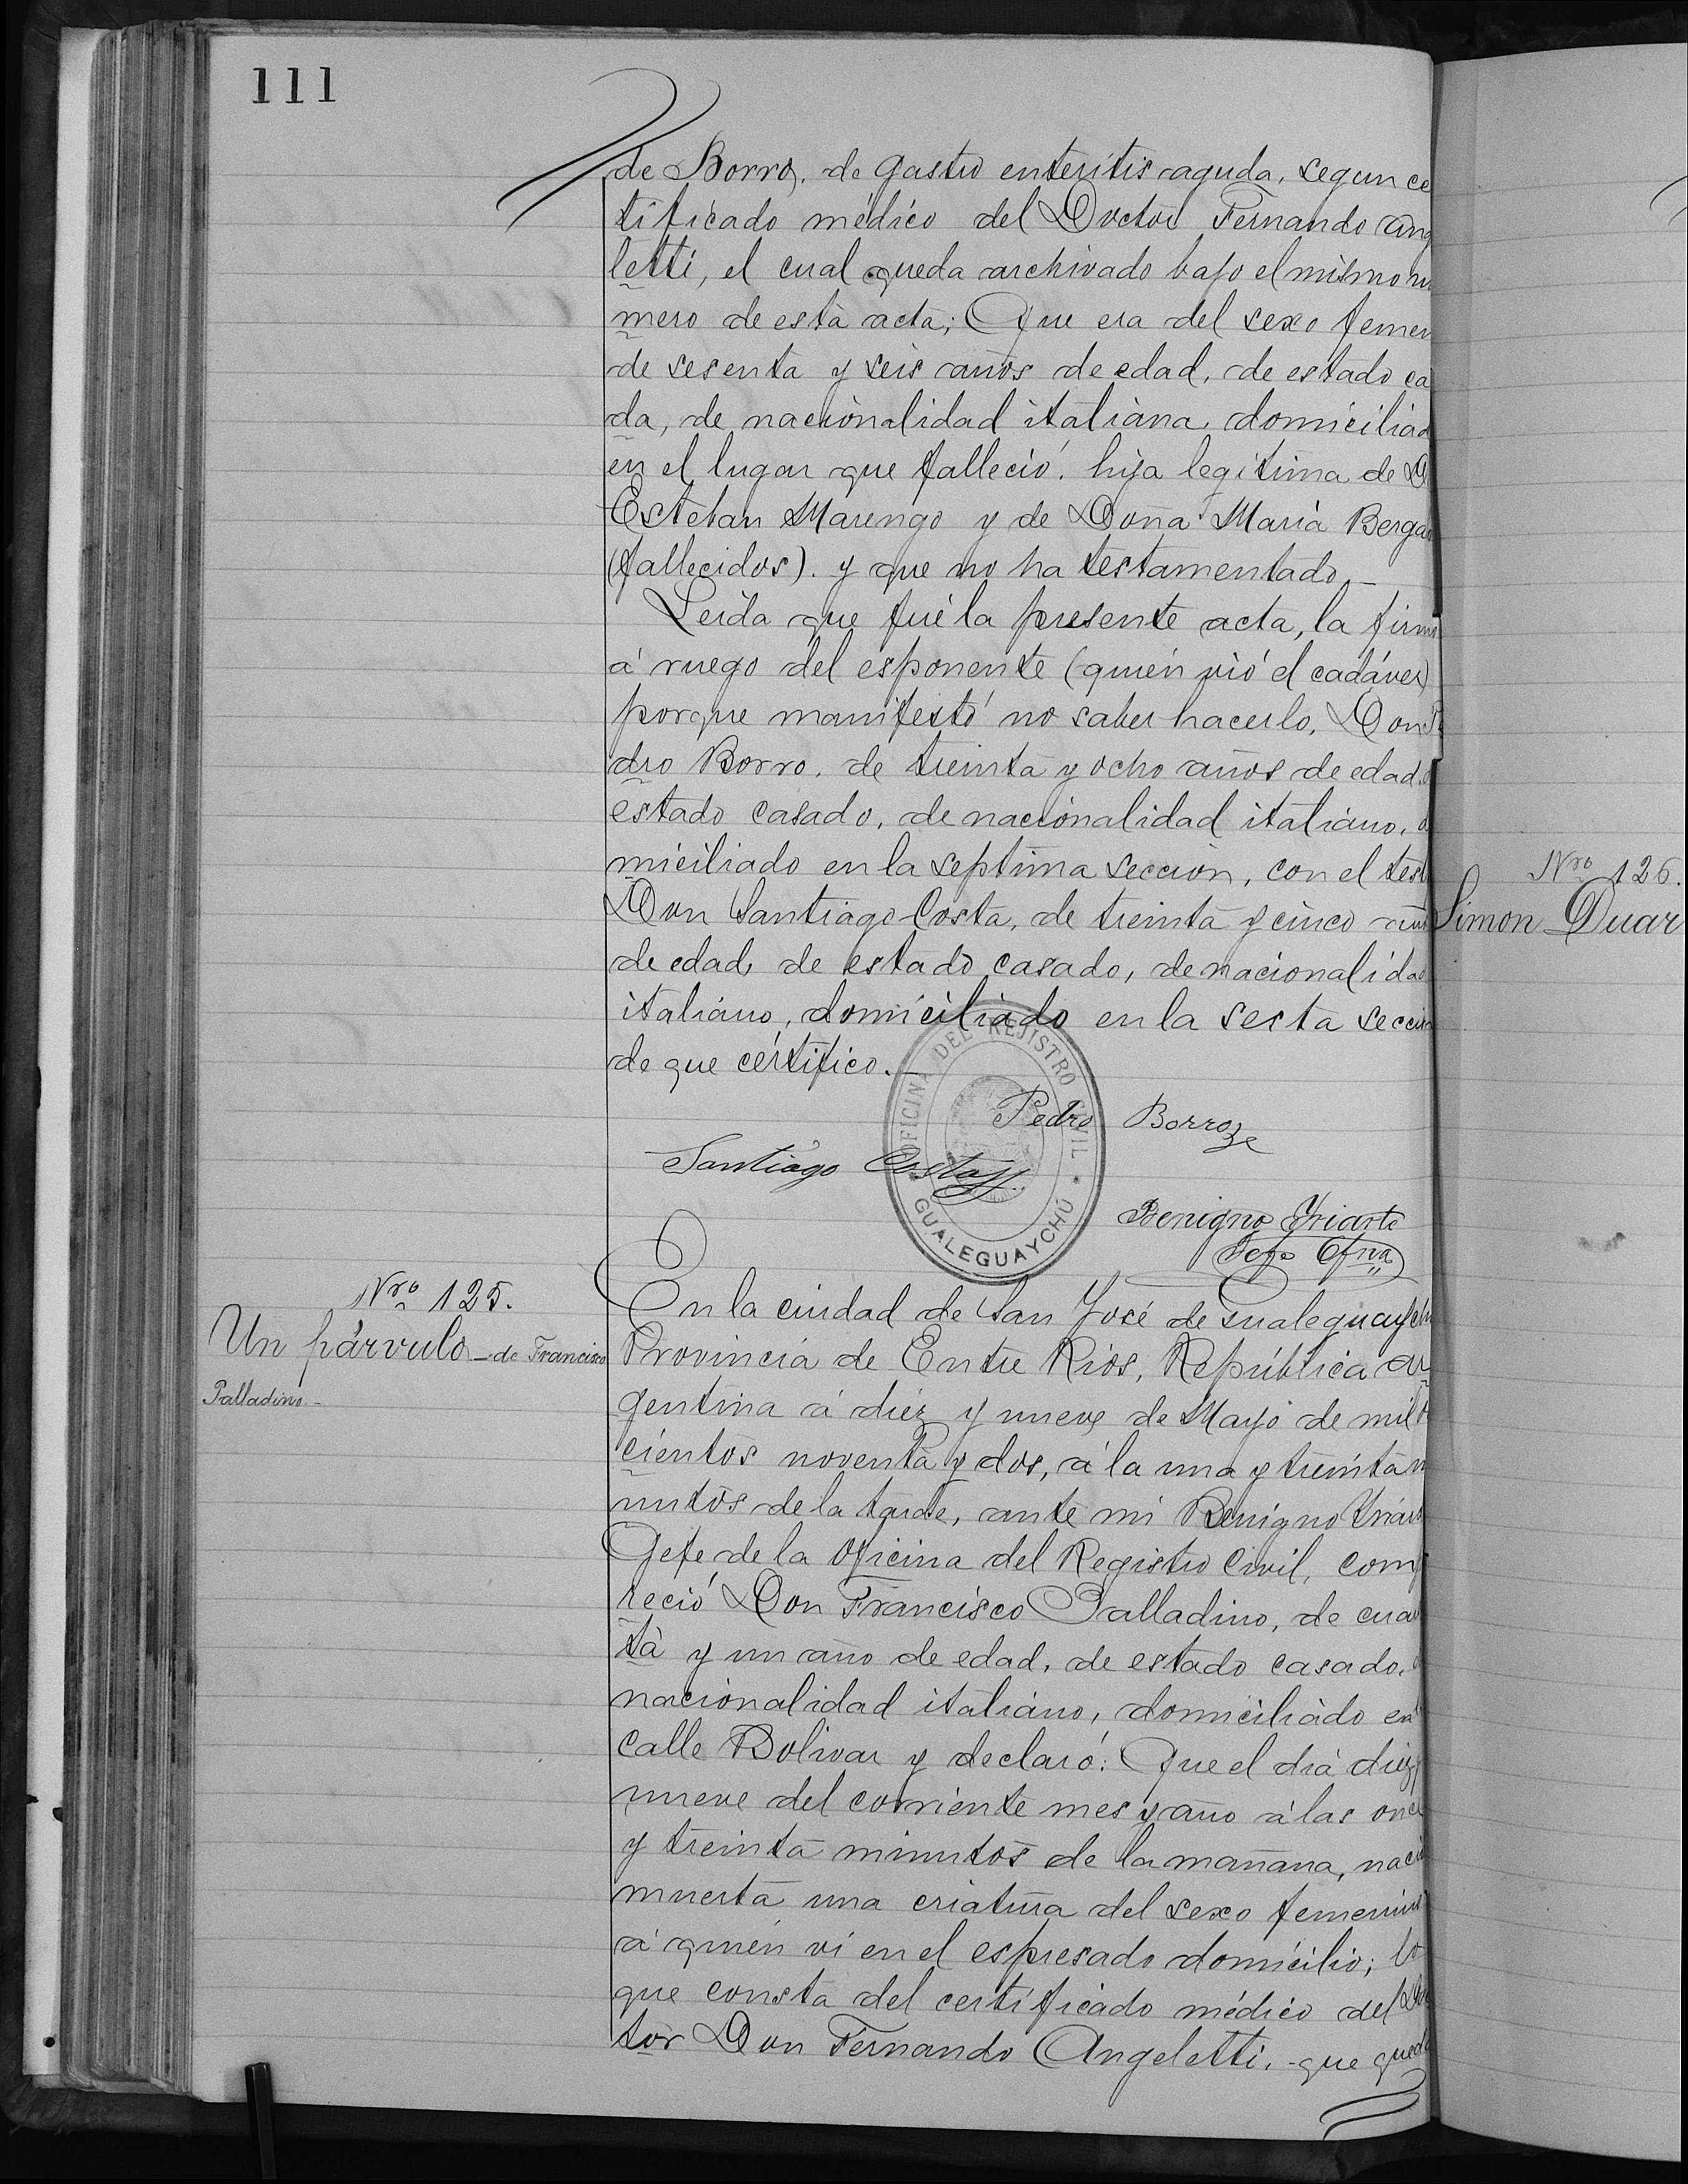 111
de Borro, de gastro enteritis aguda, segun ce
tificado médico del Doctor Fernando Ang
letti, el cual queda archivado bajo el mismo nu
mero de esta acta; Que era del sexo femen
de sesenta y seis años de edad, de estado ca
da, de nacionalidad italiana, domiciliad
en el lugar que falleció, hija legítima de D
Esteban Marengo y de Doña María Berga
(fallecidos). y que no ha testamentado.—
Leida que fué la presente acta, la firm
á ruego del esponente (quién vió el cadáver)
porque manifestó no saber hacerlo, Don
dro Borro, de treinta y ocho años de edad,
estado casado, de nacionalidad italiano,
miciliado en la septima sección, con el test
Don Santiago Costa, de treinta y cinco añ
de edad, de estado casado, de nacionalidad
italiano, domiciliado en la sesta secció
de que certifico.—
OFICINA DEL REJISTRO CIVIL
GUALEGUAYCHÚ
Pedro Borro
Santiago Costa
Benigno Yriarte
Gefe Ofna
Nro 125.
Un párvulo—de Francisco
Palladino.-
En la ciudad de San José de Gualeguaychu
Provincia de Entre Rios, República Ar
gentina á diez y nueve de Mayo de mil o
cientos noventa y dos, á la una y treinta m
nutos de la tarde, ante mi Benigno Yriart
Gefe de la Oficina del Registro Civil, comp
reció Don Francisco Palladino, de cuar
ta y un año de edad, de estado casado,
nacionalidad italiano, domiciliado en
calle Bolivar y declaró: Que el dia diez y
nueve del corriente mes y año á las once
y treinta minutos de la mañana, nació
muerta una criatura del sexo femenino
á quién vi en el espresado domicilio; lo
que consta del certificado médico del Doc
tor Don Fernando Angeletti, que queda
Nro 126.
Simon Duar